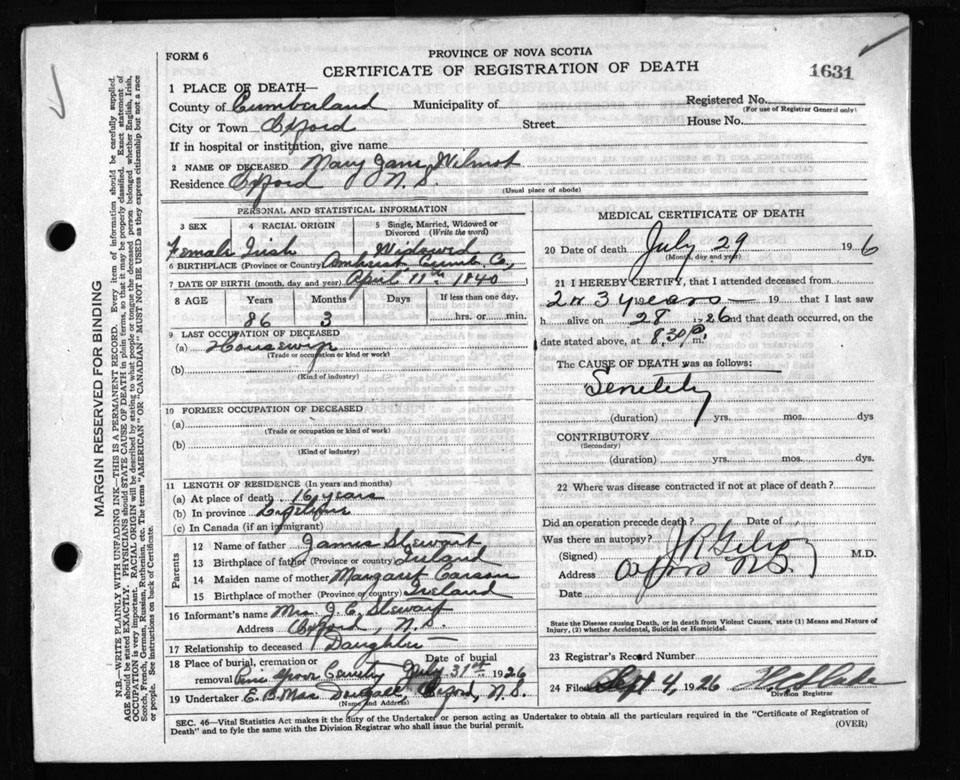 FORM 6
PROVINCE OF NOVA SCOTIA
CERTIFICATE OF REGISTRATION OF DEATH
1631
1 PLACE OF DEATH—
County of Cumberland Municipality of Registered No.
(For use of Registrar General only)
City or Town Oxford Street House No.
If in hospital or institution, give name
2 NAME OF DECEASED Mary Jane Wilmot
Residence Oxford N.S.
(Usual place of abode)
MARGIN RESERVED FOR BINDING
N.B.—WRITE PLAINLY WITH UNFADING INK—THIS IS A PERMANENT RECORD. Every item of information should be carefully supplied.
AGE should be stated EXACTLY. PHYSICIANS should STATE CAUSE OF DEATH in plain terms, so that it may be properly classified. Exact statement of
OCCUPATION is very important. RACIAL ORIGIN will be described by stating to what people or tongue the deceased person belonged whether English, Irish,
Scotch, French, German, Russian, Ruthenian, etc. The terms "AMERICAN" OR "CANADIAN" MUST NOT BE USED as they express citizenship but not a race
or people. See instructions on back of Certificate.
PERSONAL AND STATISTICAL INFORMATION
3 SEX 4 RACIAL ORIGIN 5 Single, Married, Widowed or
Divorced (Write the word)
Female Irish Widowed
6 BIRTHPLACE (Province or Country) Amherst Cumb. Co.,
7 DATE OF BIRTH (month, day and year) April 11th 1840
8 AGE Years Months Days If less than one day.
86 3 hrs. or min.
9 LAST OCCUPATION OF DECEASED
(a) Housewife
(Trade or occupation or kind or work)
(b)
(Kind of industry)
10 FORMER OCCUPATION OF DECEASED
(a)
(Trade or occupation or kind of work)
(b)
(Kind of industry)
11 LENGTH OF RESIDENCE (In years and months)
(a) At place of death 16 years
(b) In province Lifetime
(c) In Canada (if an immigrant)
Parents
12 Name of father James Stewart
13 Birthplace of father (Province or country) Ireland
14 Maiden name of mother Margaret Carson
15 Birthplace of mother (Province or country) Ireland
16 Informant's name Mrs. J. E. Stewart
Address Oxford, N.S.
17 Relationship to deceased Daughter
18 Place of burial, cremation or Date of burial
removal July 31st 1926
19 Undertaker E. B. MacDougall, Oxford, N.S.
(Name and Address)
MEDICAL CERTIFICATE OF DEATH
20 Date of death July 29 19 6
(Month, day and year)
21 I HEREBY CERTIFY, that I attended deceased from
2 or 3 years — 19 that I last saw
h alive on 28 26 and that death occurred, on
date stated above, at 8.30 P. m.
The CAUSE OF DEATH was as follows:
Senility
(duration) yrs. mos. dys
CONTRIBUTORY
(Secondary)
(duration) yrs. mos. dys.
22 Where was disease contracted if not at place of death?
Did an operation precede death? Date of
Was there an autopsy?
(Signed) J R M.D.
Address Oxford N.S.
Date
State the Disease causing Death, or in death from Violent Causes, state (1) Means and Nature of
Injury, (2) whether Accidental, Suicidal or Homicidal.
23 Registrar's Record Number
24 Filed Sept 4, 1926
Division Registrar
SEC. 46—Vital Statistics Act makes it the duty of the Undertaker or person acting as Undertaker to obtain all the particulars required in the "Certificate of Registration of
Death" and to fyle the same with the Division Registrar who shall issue the burial permit.
(OVER)